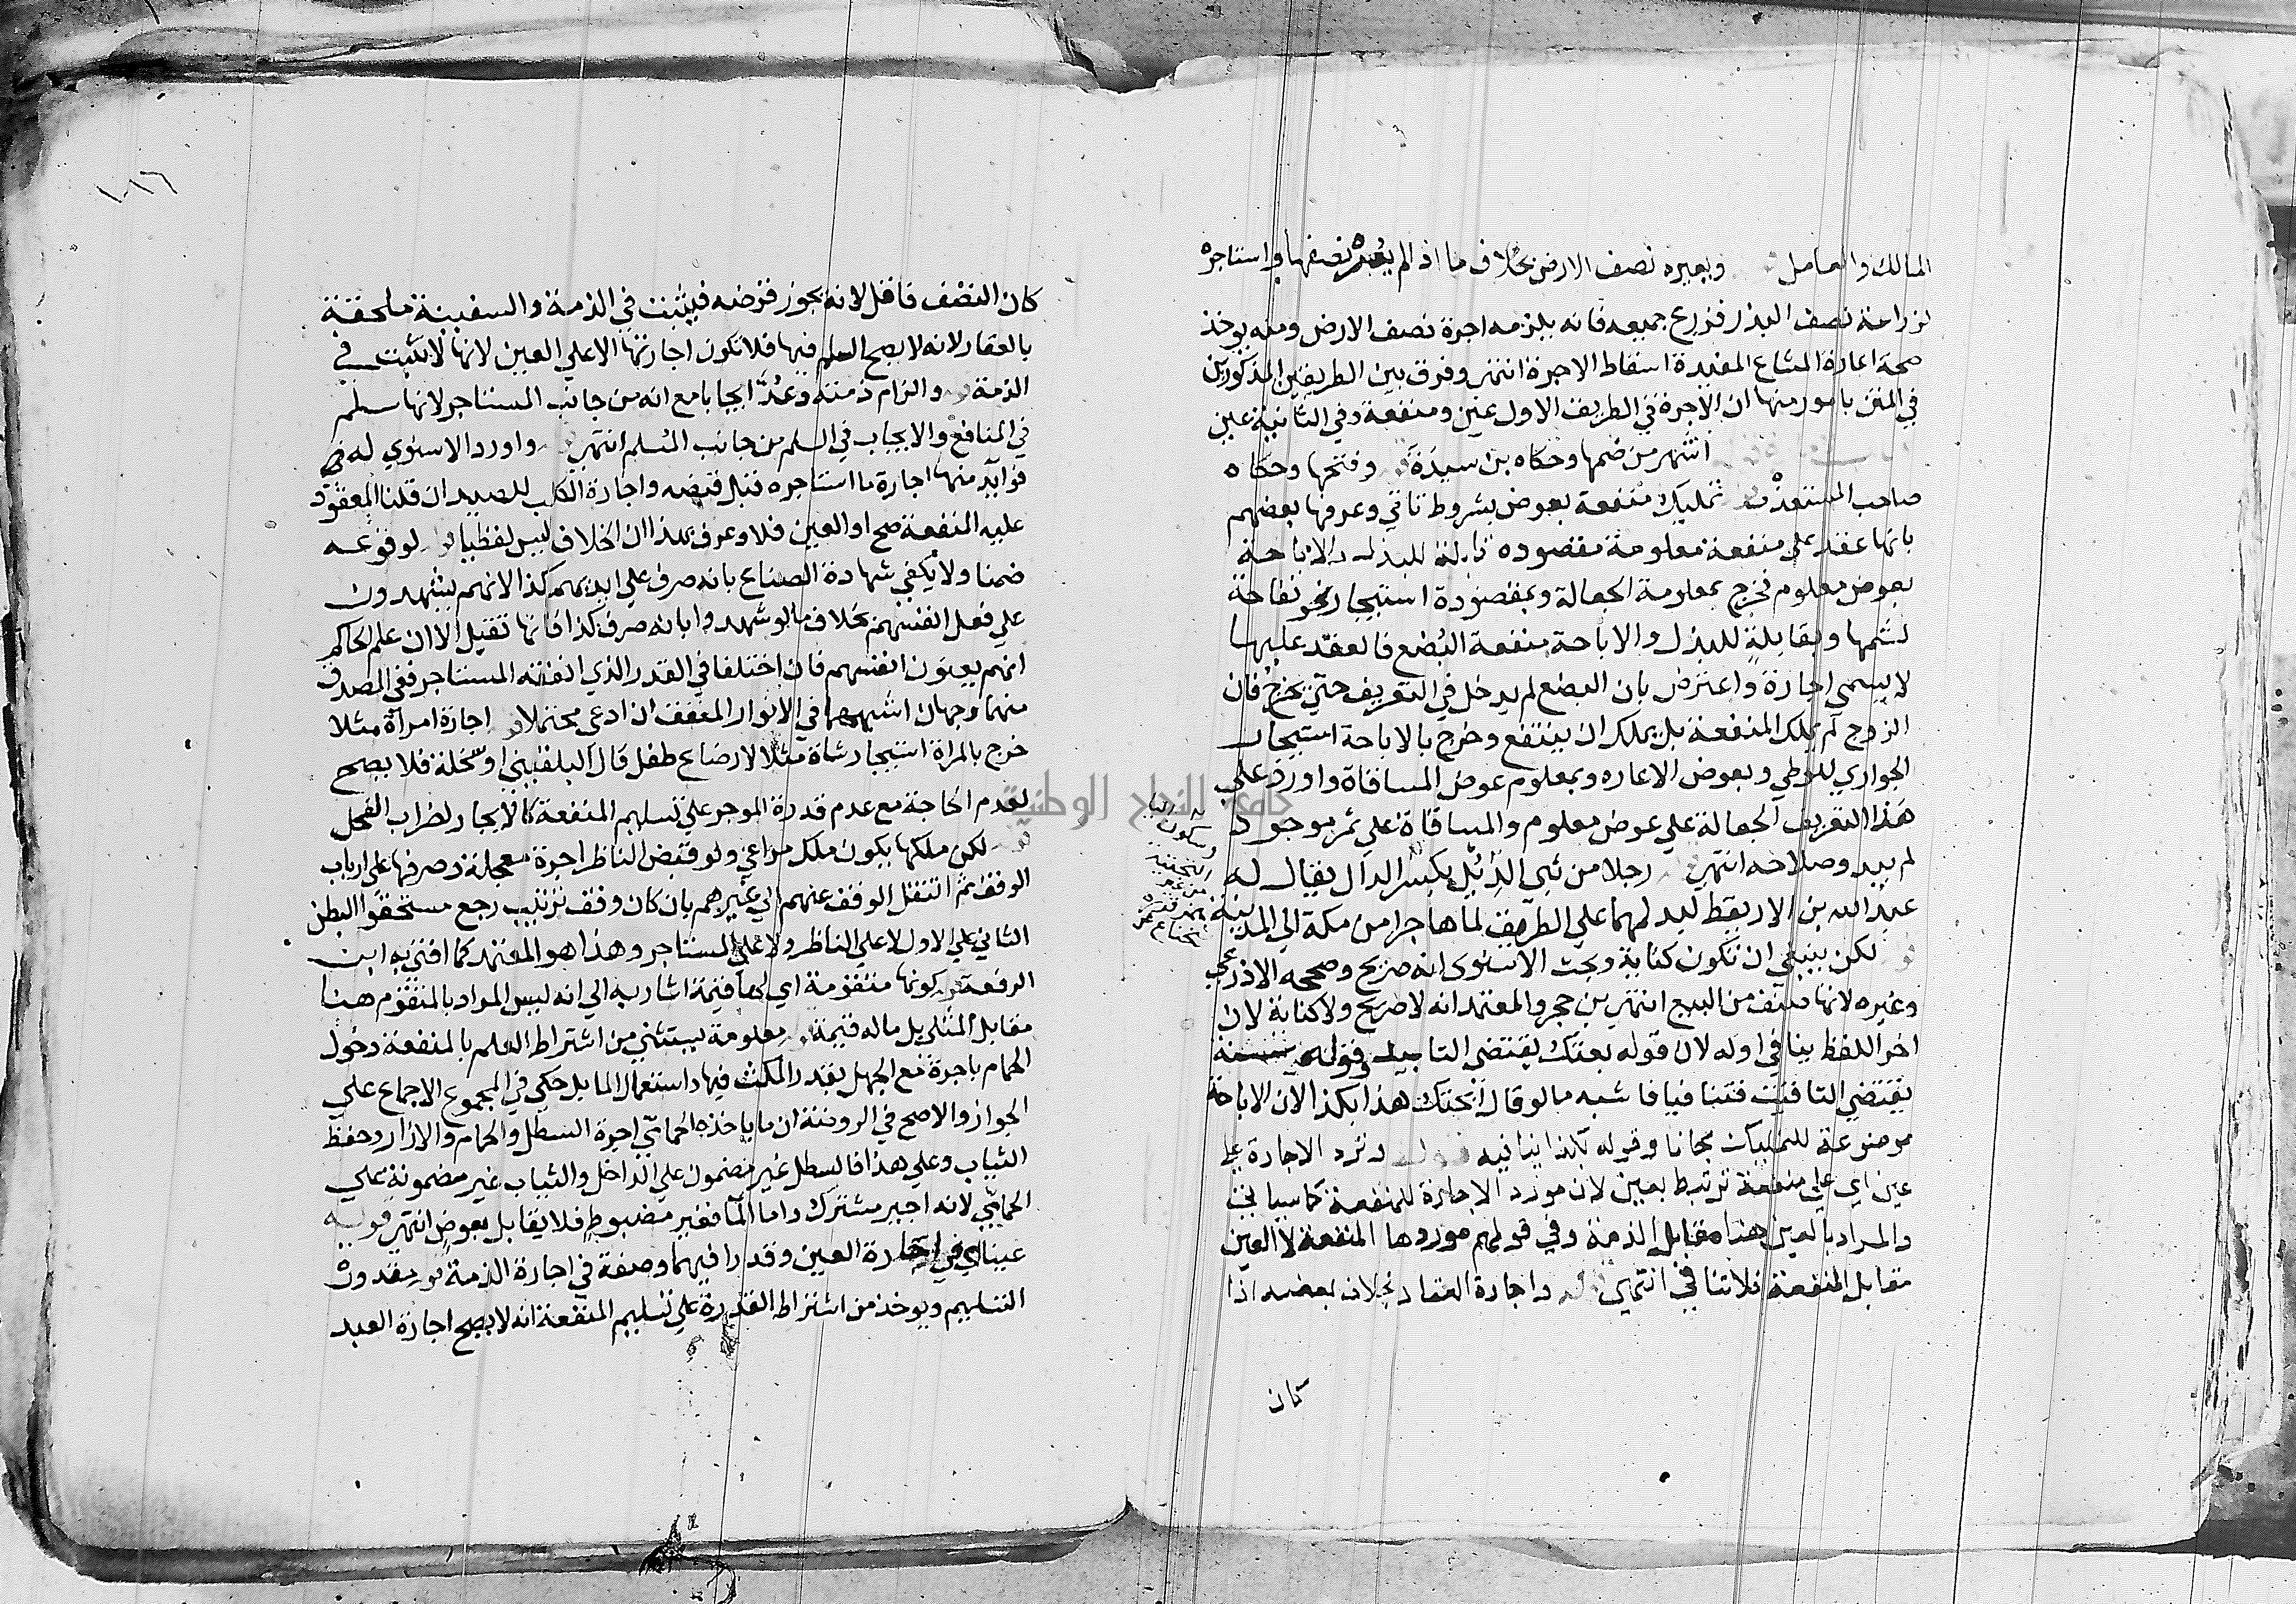 المالك والعامل ويعيره نصف الارض بخلاف ما اذا لم يُعره نصفها واستاجره
لزراعة نصف البذر فزرع جميعه فانه يلزمه اجرة نصف الارض ومنه يوخذ
صحة اعارة المشاع المفيدة اسقاط الاجرة انتهى وفرق بين الطريقين المذكورين
في المتن بامور منها ان الاجرة في الطريق الاول عين ومنفعة وفي الثانية عين
اشهر من ضمها وحكاه بن سيدة وفتحها وحكاه
صاحب المستعذب تمليك منفعة بعوض بشروط تاتي وعرفها بعضهم
بانها عقد على منفعة معلومة مقصودة قابلة للبذل والاباحة
بعوض معلوم فخرج بمعلومة الجعالة وبمقصودة استيجار نحو تفاحة
لشمها وبقابلة للبذل والاباحة منفعة البُضع فالعقد عليها
لا يسمى اجارة واعترض بان البضع لم يدخل في التعريف حتى يخرج فان
الزوج لم يملك المنفعة بل يملك ان ينتفع وخرج بالاباحة استيجار
الجواري للوطي وبعوض الاعاره وبمعلوم عوض المساقاة واورد على
هذا التعريف الجعالة على عوض معلوم والمساقاة على ثمر موجود
لم يبد وصلاحه انتهى رجلا من بني الدُئِل بكسر الدال يقال له
عبد الله بن الاريقط ليدلهما على الطريق لما هاجرا من مكة الى المدينة
لكن ينبغي ان تكون كناية وبحث الاسنوى انه صريح وصححه الاذرعي
وغيره لانها صنف من البيع انتهى بن حجر والمعتمد انه لا صريح ولا كناية لان
اخر اللفظ ينافي اوله لان قوله بعتك يقتضي التابيد وقوله سنة
يقتضي التاقيت فتنافيا فاشبه ما لو قال ابحتك هذا بكذا لان الاباحة
موضوعة للتمليك مجانا وقوله بكذا ينافيه وترد الاجارة على
عين اي على منفعة ترتبط بعين لان مورد الاجارة للمنفعة كما سياتي
والمراد بالعين هنا مقابل الذمة وفي قولهم موردها المنفعة لا العين
مقابل المنفعة فلا تنافي انتهى واجارة العقار بخلاف بعضه اذا
كان
كان النصف فاقل لانه يجوز قرضه فيثبت في الذمة والسفينة ملحقة
بالعقار لانه لا يصح السلم فيها فلا تكون اجارتها الا على العين لانها لا تثبت في
الذمة والزام ذمته وعُدَّ ايجابا مع انه من جانب المستاجر لانها سلم
في المنافع والايجاب في السلم من جانب المُسلم انتهى واورد الاسنوي له
فوايد منها اجارة ما استاجره قبل قبضه واجارة الكلب للصيد ان قلنا المعقود
عليه المنفعة صح او العين فلا وعرف بهذا ان الخلاف ليس لفظيا لوقوعه
ضمنا ولا يكفي شهادة الصناع بانه صرف على ايديهم كذا لانهم يشهدون
على فعل انفسهم بخلاف ما لو شهدوا بانه صرف كذا فانها تقبل الا ان علم الحاكم
انهم يعنون انفسهم فان اختلفا في القدر الذي انفقه المستاجر ففي المصدق
منهما وجهان اشبههما في الانوار المنفق ان ادعى محتملا اجارة امرأة مثلا
خرج بالمراة استيجار شاة مثلا لارضاع طفل قال البلقيني او سخلة فلا يصح
لعدم الحاجة مع عدم قدرة الموجر على تسليم المنفعة كالايجار لضراب الفحل
لكن ملكها يكون ملك مراعى ولو قبض الناظر اجرة معجلة وصرفها على ارباب
الوقف ثم انتقل الوقف عنهم الى غيرهم بان كان وقف ترتيب رجع مستحقوا البطن
الثاني على الاول لا على الناظر ولا على المستاجر وهذا هو المعتمد كما افتى به ابن
الرفعة كونها متقومة اي لها قيمة اشار به الى انه ليس المراد بالمتقوم هنا
مقابل المثلي بل ما له قيمة معلومة يستثنى من اشتراط العلم بالمنفعة دخول
الحمام باجرة مع الجهل بقدر المكث فيها واستعمال الما بل حكي في المجموع الاجماع على
الجواز والاصح في الروضة ان ما ياخذه الحمامي اجرة السطل والحمام والازار وحفظ
الثياب وعلى هذا فالسطل غير مضمون على الداخل والثياب غير مضمونة على
الحمامي لانه اجير مشترك واما الما فغير مضبوط فلا يقابل بعوض انتهى قوله
عينا اي في اجارة العين وقدرا فيهما وصفة في اجارة الذمة مقدورة
التسليم ويوخذ من اشتراط القدرة على تسليم المنفعة انه لا يصح اجارة العبد
جامعة النجاح الوطنية